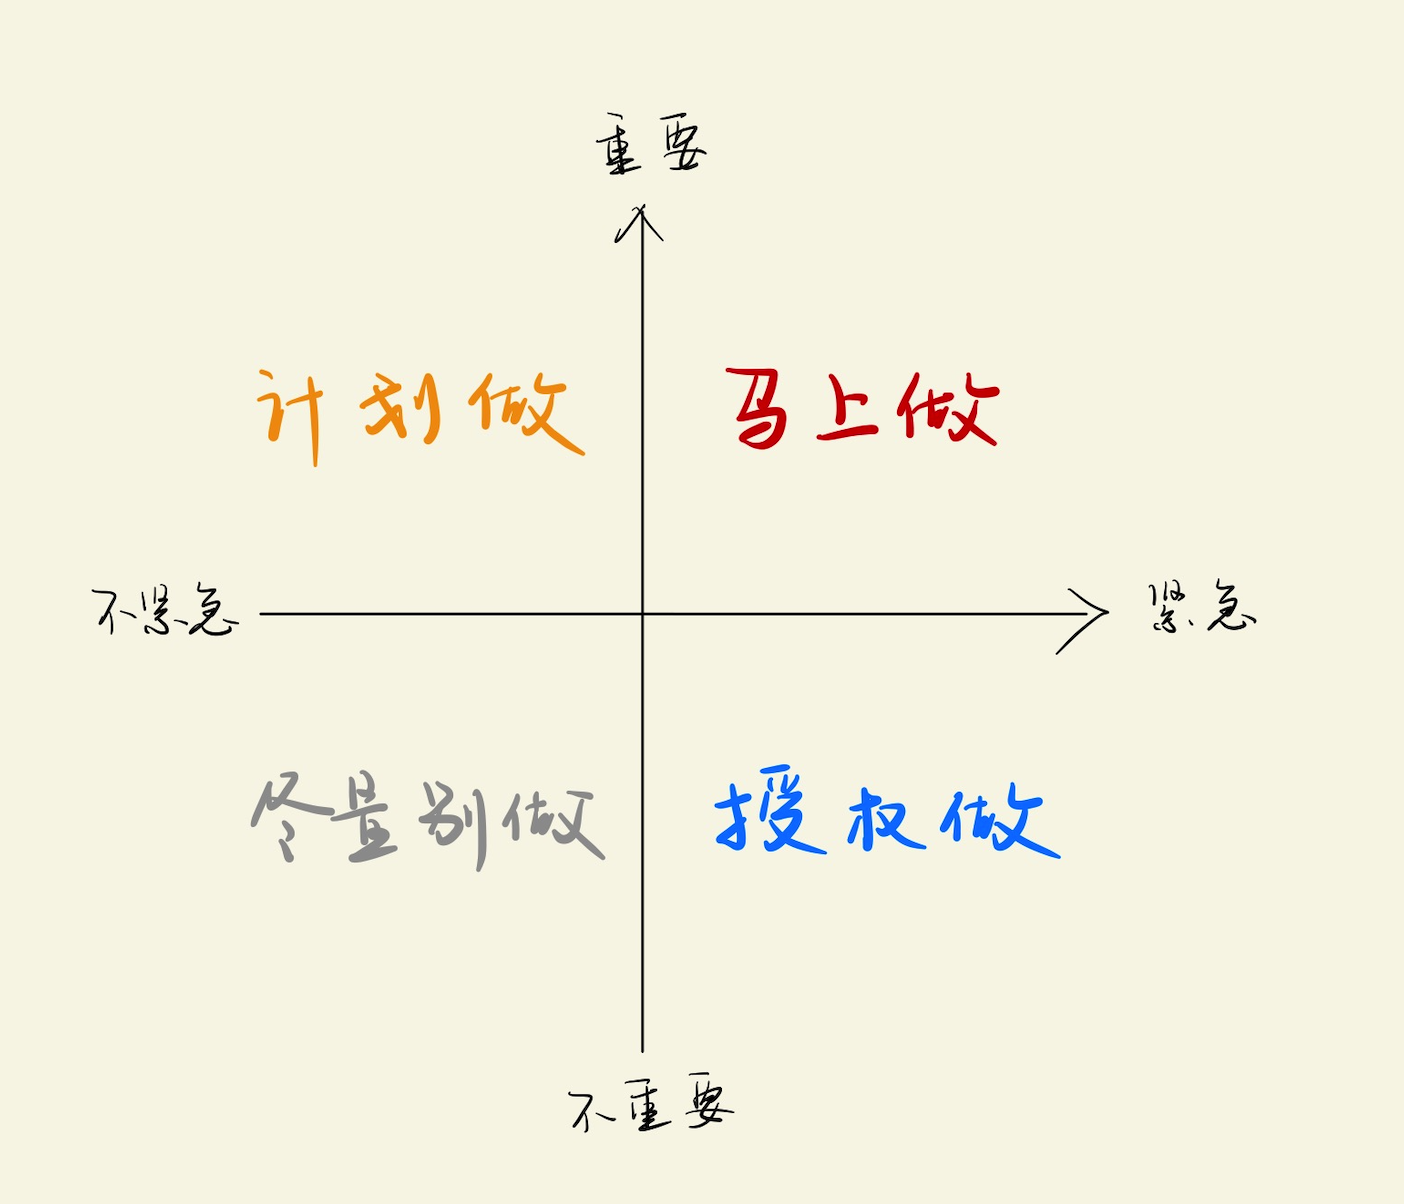 重要
计划做
马上做
不紧急
紧急
尽量别做
授权做
不重要